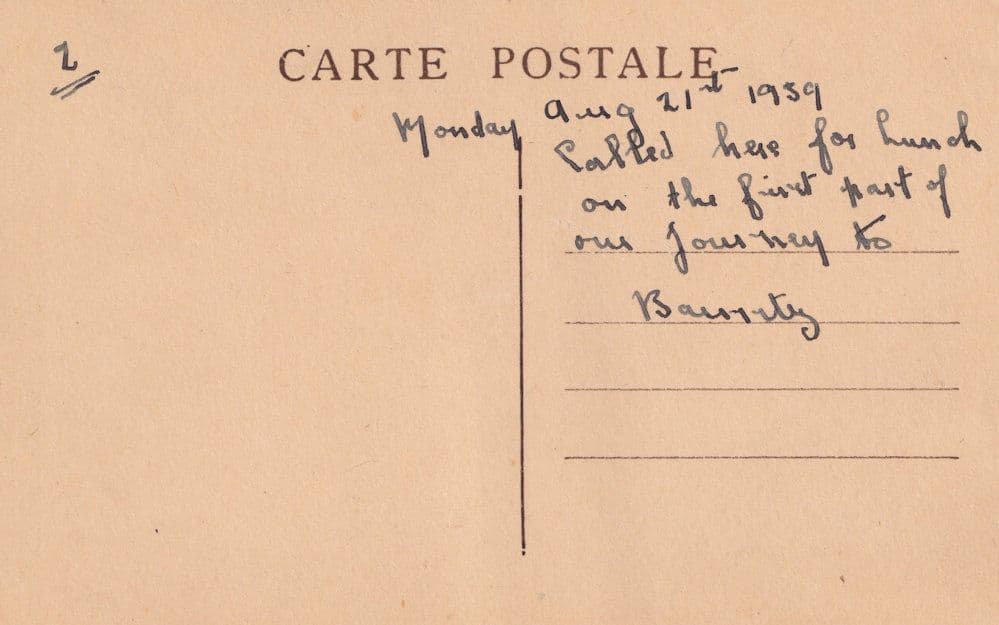 2
CARTE POSTALE
Monday Aug 21st 1939
Called here for Lunch
on the first part of
our Journey to